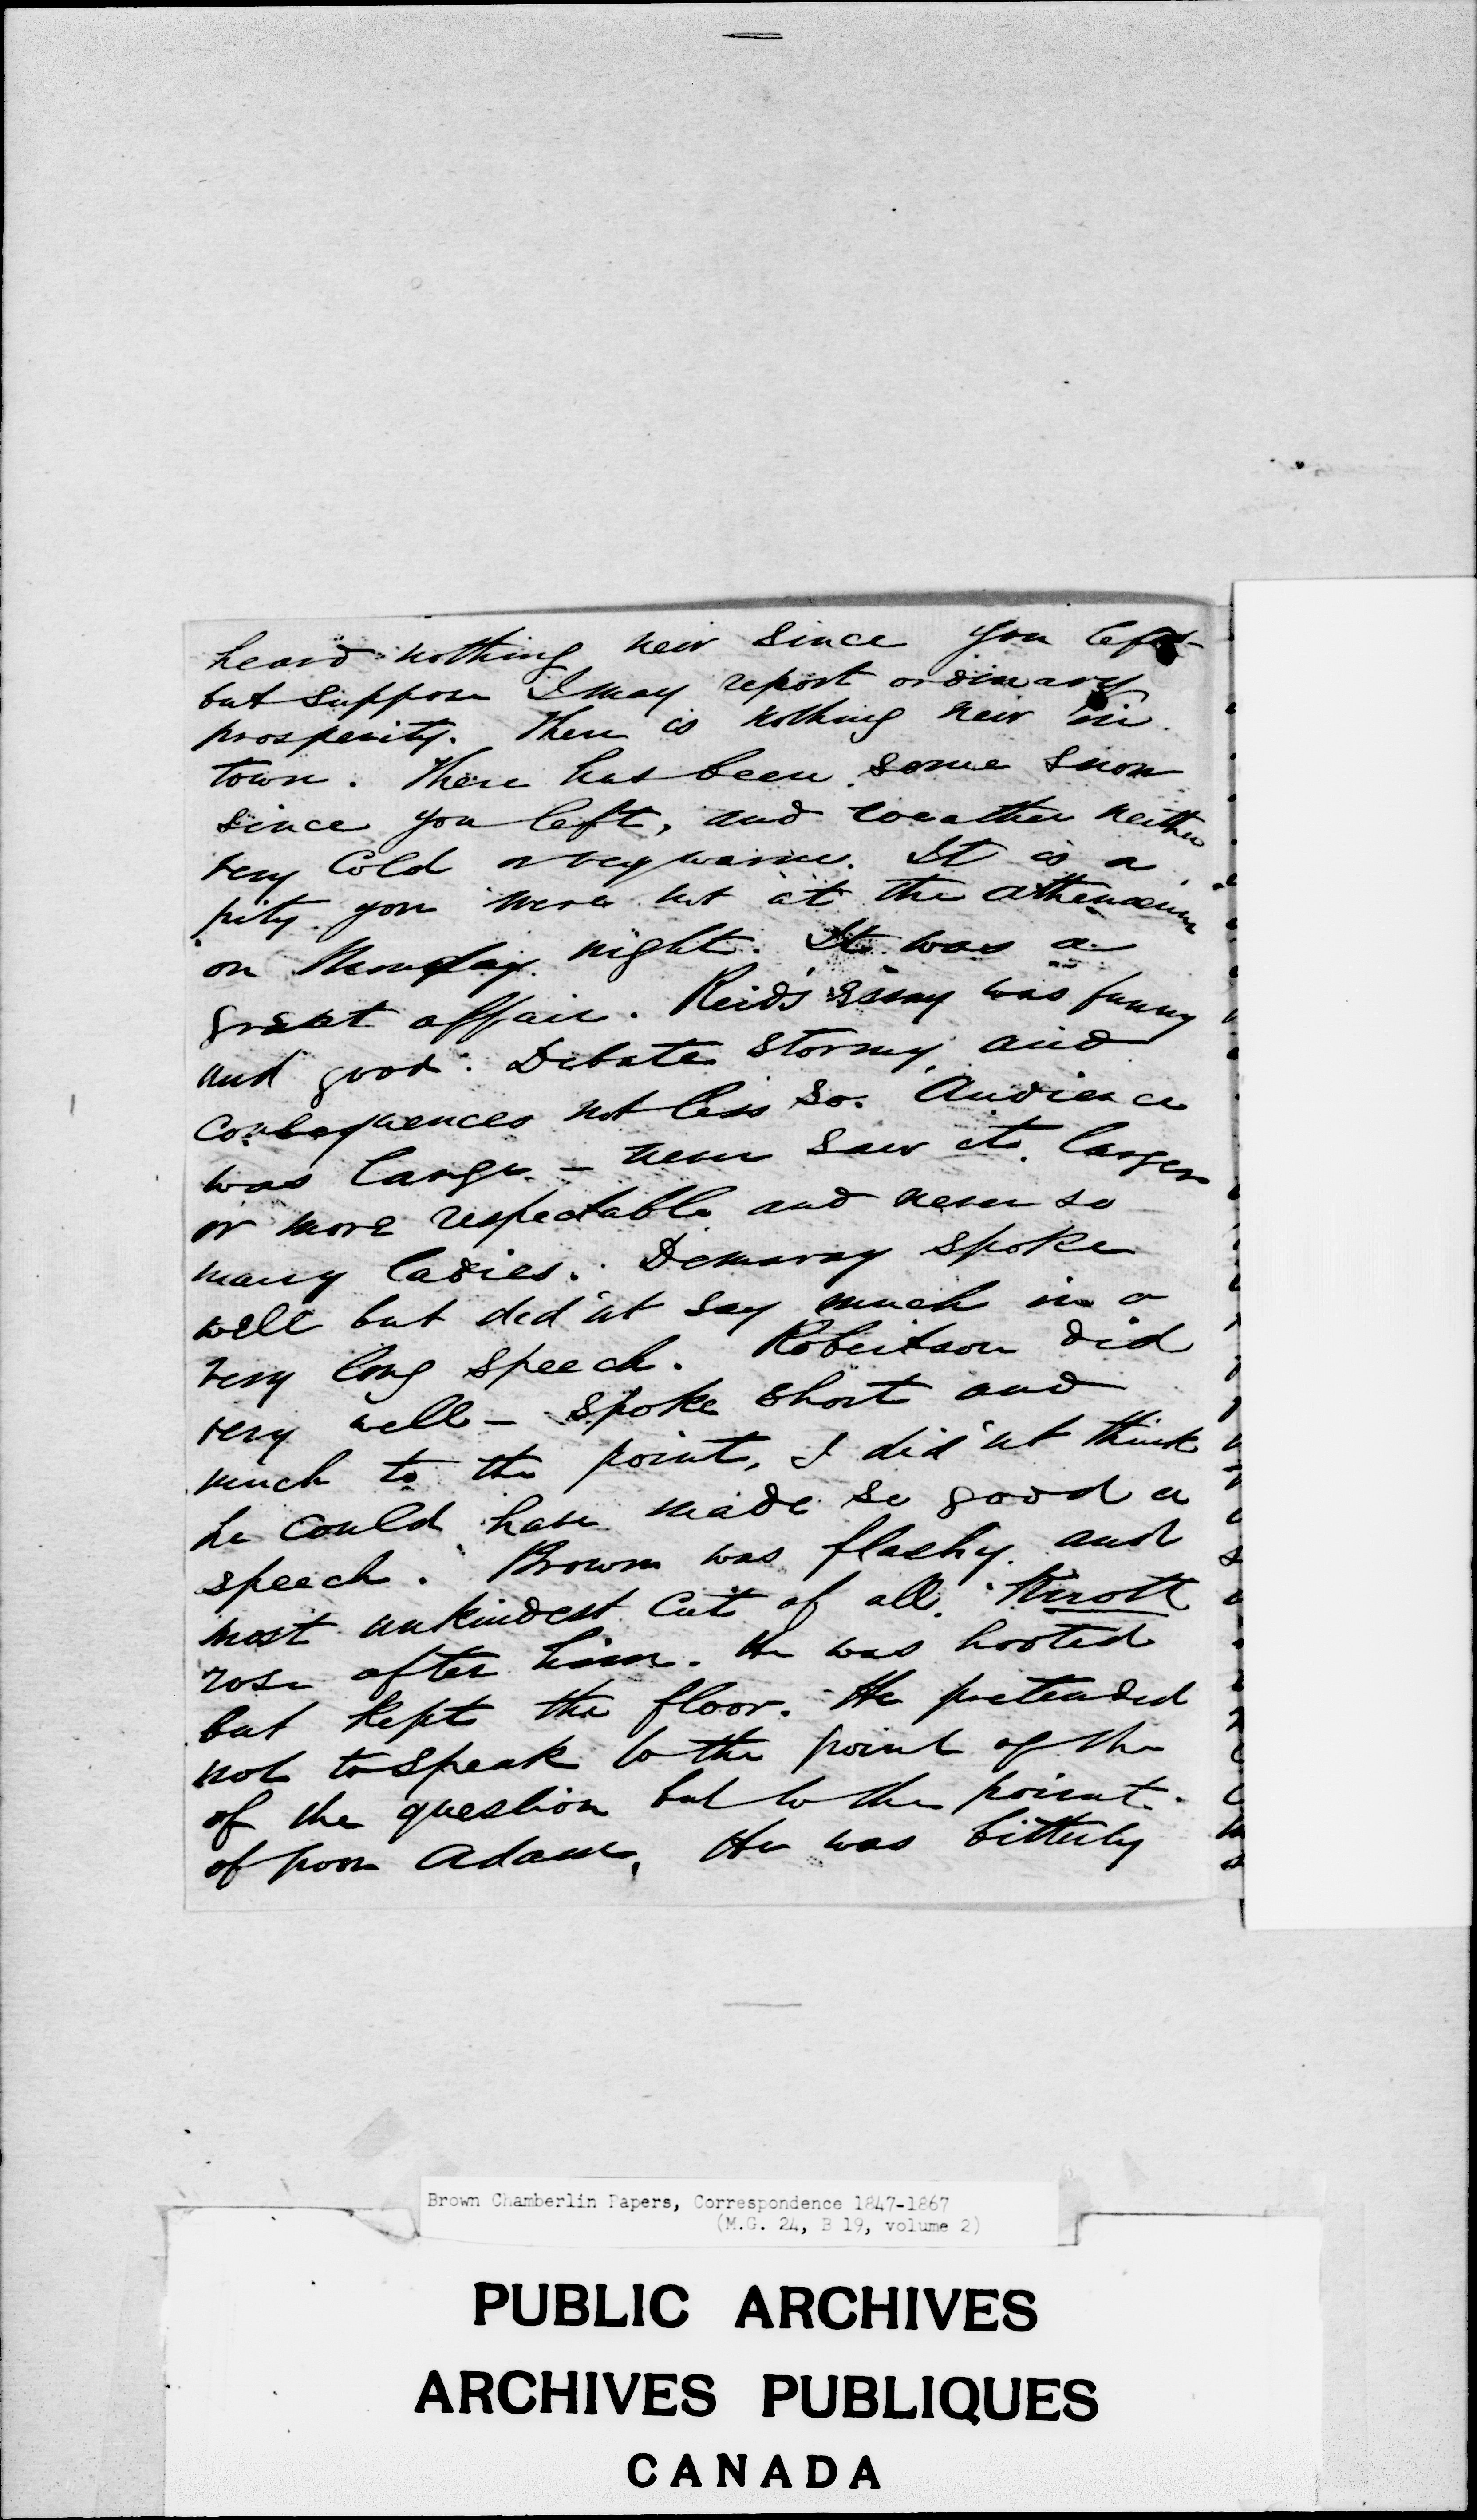 heard nothing new since you left
but suppose I may report ordinary
prosperity. There is nothing new in
town. There has been some snow
since you left, and weather neither
very cold or very warm. It is a
pity you were not at the Athenaeum
on Monday night. It was a
great affair. Reid's essay was funny
and good. Debate stormy and
consequences not less so. Audience
was large - never saw it larger
or more respectable and never so
many ladies. Demaray spoke
well but did'nt say much in a
very long speech. Robertson did
very well - spoke short and
much to the point, I did'nt think
he could have made so good a
speech. Brown was flashy and
most unkindest cut of all.
rose after him. He was hooted
but kept the floor. He pretended
not to speak to the point of the
of the question but to the point
of poor Adam. He was bitterly
Brown Chamberlin Papers, Correspondence 1847-1867
(M.G. 24, B 19, volume 2)
PUBLIC ARCHIVES
ARCHIVES PUBLIQUES
CANADA